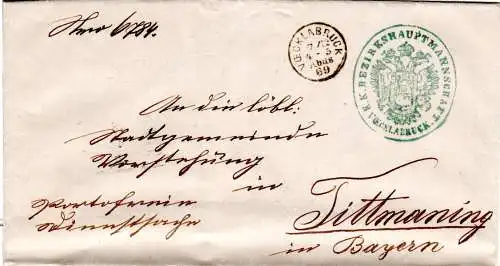 Nro 6784.
VŒCKLABRUCK
4-5
Abds
69
K.K. BEZIRKSHAUPTMANNSCHAFT VŒCKLABRUCK.
An die löbl:
Stadtgemeinde
Vorstehung
in
Portofreie
Dienstsache
Tittmaning
in Bayern